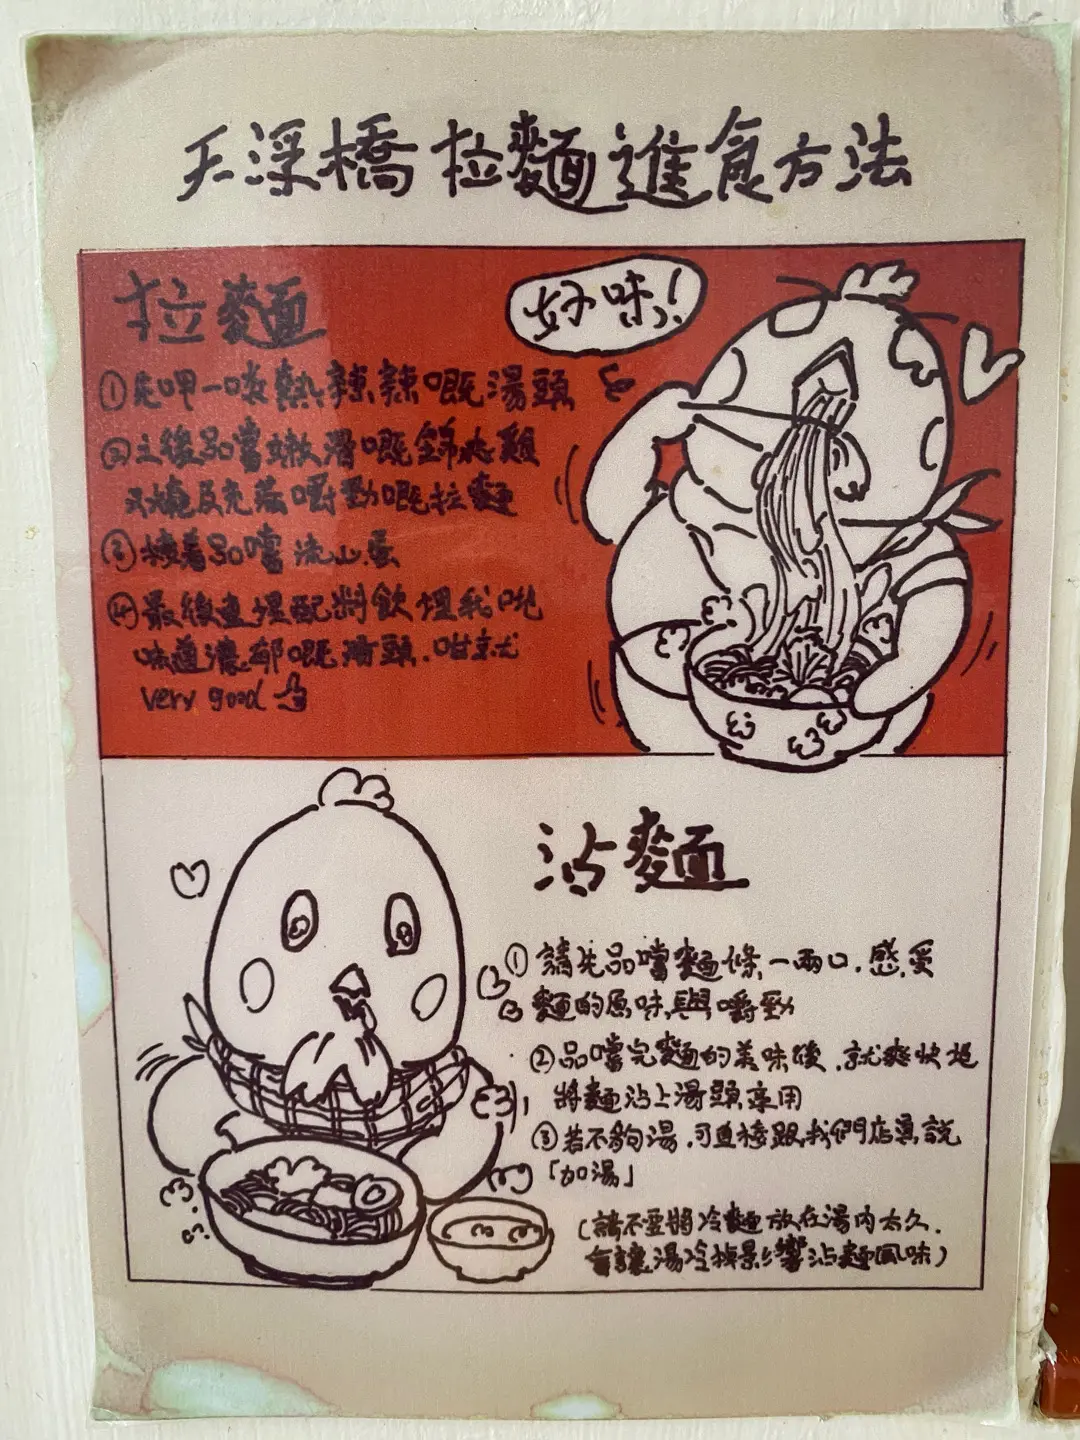 天深橋拉麵進食方法
拉麵
好味!
①先呷一啖熱辣辣嘅湯頭
②之後品嚐嫩滑嘅錦水雞
叉燒及充滿嚼勁嘅拉麵
③接着品嚐流心蛋
④最後直埋配料飲埋我哋
味道濃郁嘅湯頭.咁就
very good
沾麵
①請先品嚐麵條一兩口.感受
麵的原味與嚼勁
②品嚐完麵的美味後.就爽快地
將麵沾上湯頭享用
③若不夠湯.可直接跟我們店員說
「加湯」
(請不要將冷麵放在湯內太久.
會讓湯冷掉影響沾麵風味)